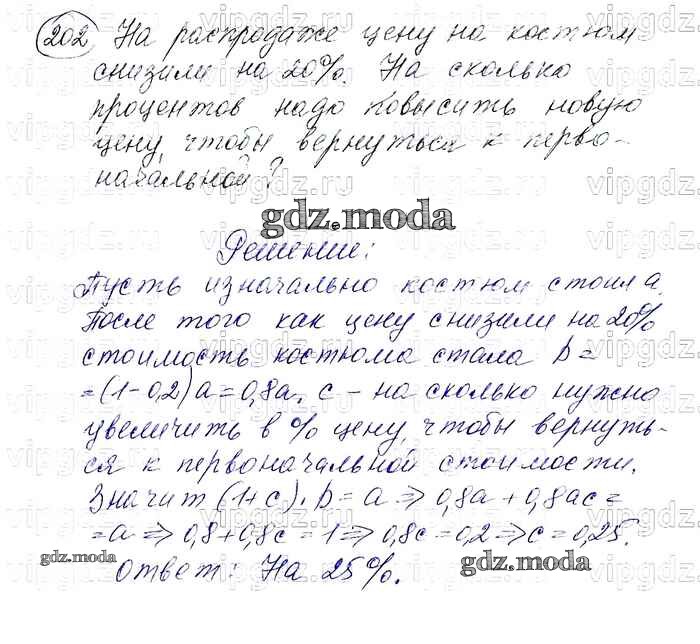 202 На распродаже цену на костюм
снизили на 20%. На сколько
процентов надо повысить новую
цену, чтобы вернуться к перво-
начальной?
gdz.moda
Решение:
Пусть изначально костюм стоил a.
После того как цену снизили на 20%
стоимость костюма стала b =
= (1-0,2)a = 0,8a. c – на сколько нужно
увеличить в % цену, чтобы вернуть-
ся к первоначальной стоимости.
Значит (1+c)·b = a ⇒ 0,8a + 0,8ac =
= a ⇒ 0,8+0,8c = 1 ⇒ 0,8c = 0,2 ⇒ c = 0,25.
gdz.moda Ответ: На 25%. gdz.moda